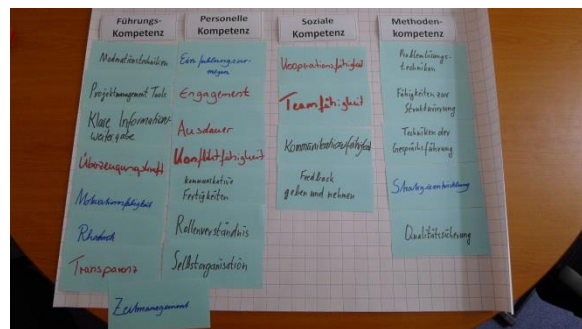 Führungs-
Kompetenz
Moderationstechniken
Projektmanagement Tools
Klare Informations-
weitergabe
Überzeugungskraft
Motivationsfähigkeit
Rhetorik
Transparenz
Zeitmanagement
Personelle
Kompetenz
Einfühlungsver-
mögen
Engagement
Ausdauer
Konfliktfähigkeit
kommunikative
Fertigkeiten
Rollenverständnis
Selbstorganisation
Soziale
Kompetenz
Kooperationsfähigkeit
Teamfähigkeit
Kommunikationsfähigkeit
Feedback
geben und nehmen
Methoden-
kompetenz
Problemlösungs-
techniken
Fähigkeiten zur
Strukturierung
Techniken der
Gesprächsführung
Strategieentwicklung
Qualitätssicherung